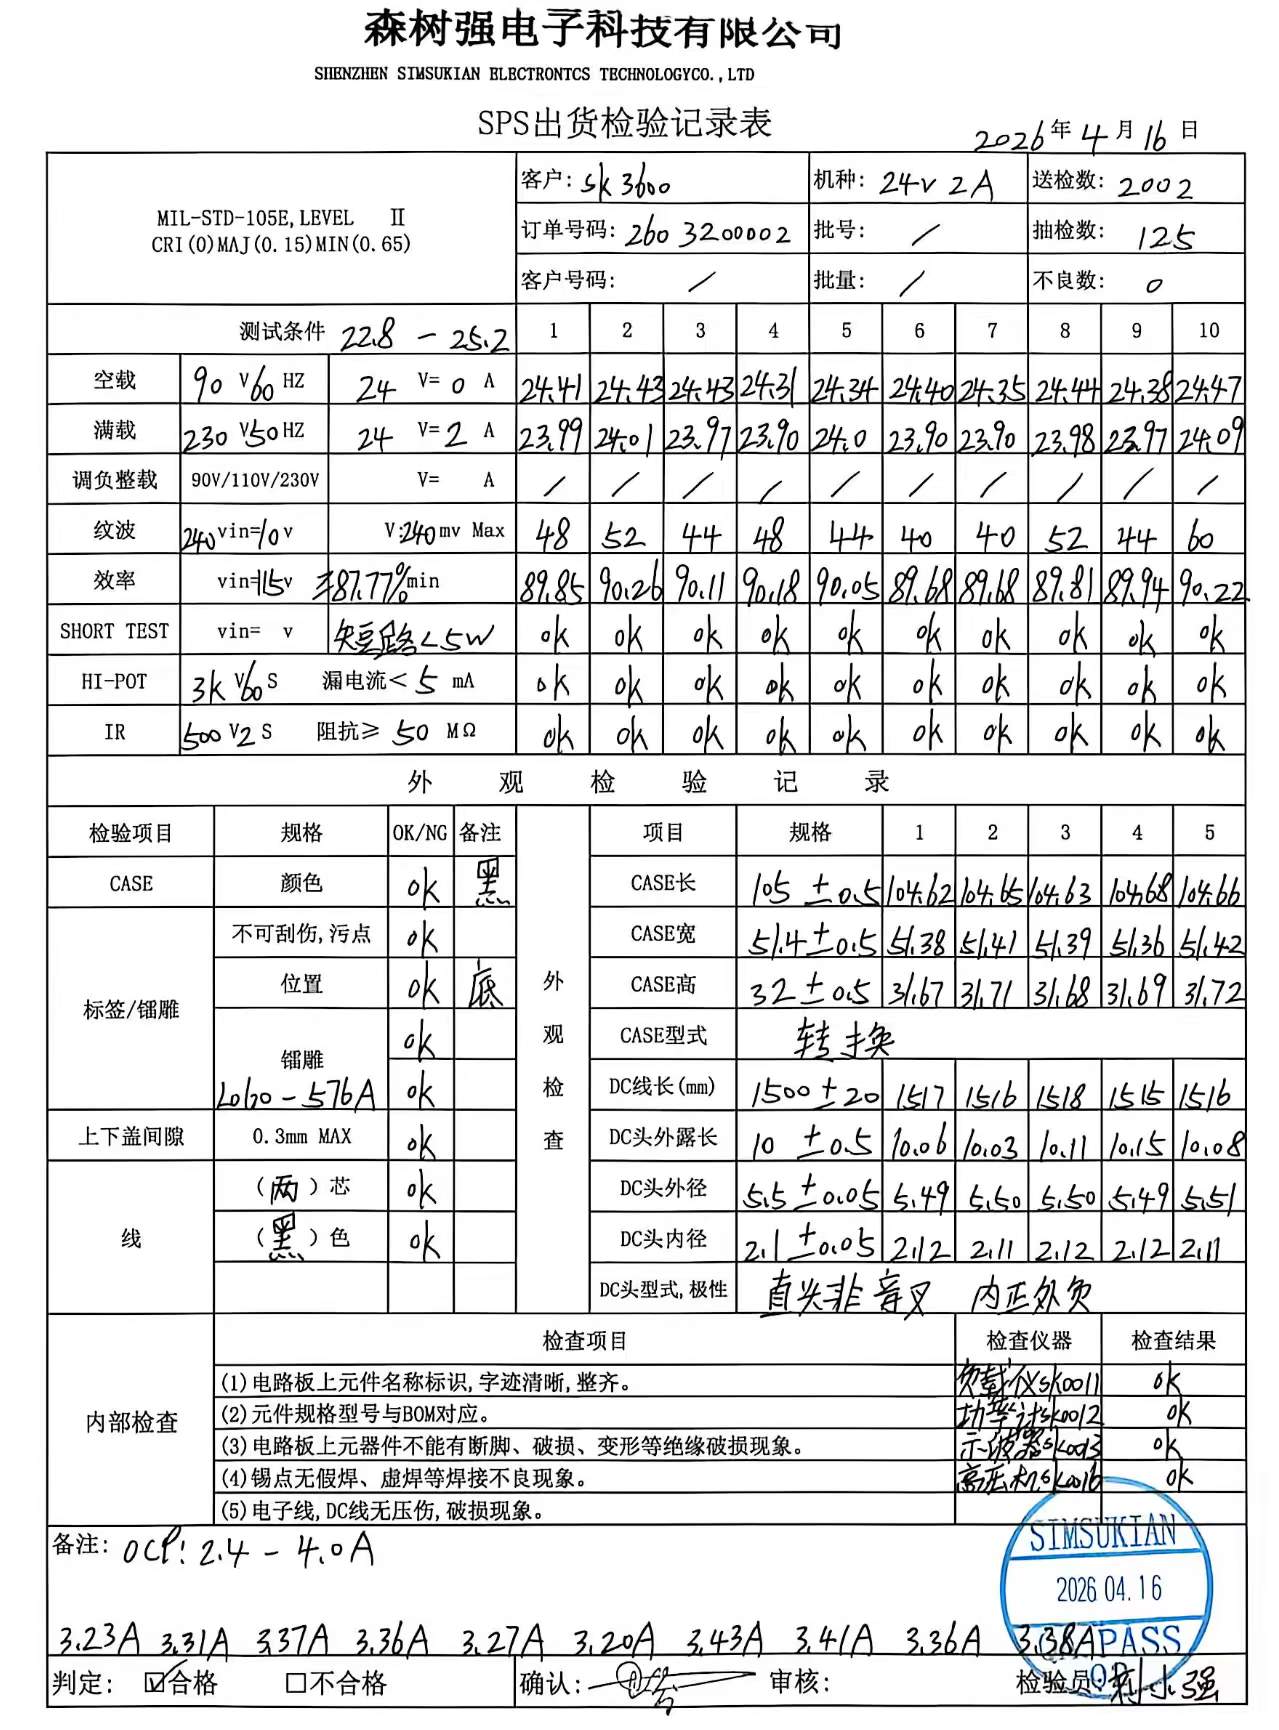 森树强电子科技有限公司
SHENZHEN SIMSUKIAN ELECTRONTCS TECHNOLOGYCO.,LTD
SPS出货检验记录表
2026年4月16日
MIL-STD-105E,LEVEL Ⅱ
CRI(0)MAJ(0.15)MIN(0.65)
客户: SK3600 机种: 24V 2A 送检数: 2002
订单号码: 2603200002 批号: / 抽检数: 125
客户号码: / 批量: / 不良数: 0
测试条件 22.8-25.2 1 2 3 4 5 6 7 8 9 10
空载 90 V 60 HZ 24 V= 0 A 24.41 24.43 24.43 24.31 24.34 24.40 24.35 24.44 24.38 24.47
满载 230 V 50 HZ 24 V= 2 A 23.99 24.01 23.97 23.90 24.0 23.90 23.90 23.98 23.97 24.09
调负整载 90V/110V/230V V= A / / / / / / / / / /
纹波 240 vin=10v V:240mv Max 48 52 44 48 44 40 40 52 44 60
效率 vin=115v ≥87.77%min 89.85 90.26 90.11 90.18 90.05 89.68 89.68 89.81 89.94 90.22
SHORT TEST vin= v 短路<5W ok ok ok ok ok ok ok ok ok ok
HI-POT 3K V 60 S 漏电流< 5 mA ok ok ok ok ok ok ok ok ok ok
IR 500 V 2 S 阻抗≥ 50 MΩ ok ok ok ok ok ok ok ok ok ok
外观检验记录
检验项目 规格 OK/NG 备注 项目 规格 1 2 3 4 5
CASE 颜色 ok 黑 CASE长 105±0.5 104.62 104.65 104.63 104.68 104.66
不可刮伤,污点 ok CASE宽 51.4±0.5 51.38 51.41 51.39 51.36 51.42
标签/镭雕 位置 ok 底 外观检查 CASE高 32±0.5 31.67 31.71 31.68 31.69 31.72
ok CASE型式 转换
镭雕 ok DC线长(mm) 1500±20 1517 1516 1518 1515 1516
上下盖间隙 0.3mm MAX ok DC头外露长 10 ±0.5 10.06 10.03 10.11 10.15 10.08
线 (两)芯 ok DC头外径 5.5±0.05 5.49 5.50 5.50 5.49 5.51
(黑)色 ok DC头内径 2.1±0.05 2.12 2.11 2.12 2.12 2.11
DC头型式,极性 直头非音叉 内正外负
内部检查 检查项目 检查仪器 检查结果
(1)电路板上元件名称标识,字迹清晰,整齐。 负载仪SK0011 ok
(2)元件规格型号与BOM对应。 功率计SK0012 ok
(3)电路板上元器件不能有断脚、破损、变形等绝缘破损现象。 示波器SK0013 ok
(4)锡点无假焊、虚焊等焊接不良现象。 高压机SK0016 ok
(5)电子线,DC线无压伤,破损现象。
备注: OCP: 2.4-4.0A
SIMSUKIAN
2026.04.16
3.23A 3.31A 3.37A 3.36A 3.27A 3.20A 3.43A 3.41A 3.36A 3.38A
PASS
判定: ☑合格 □不合格 确认: 审核: 检验员: 刘小强